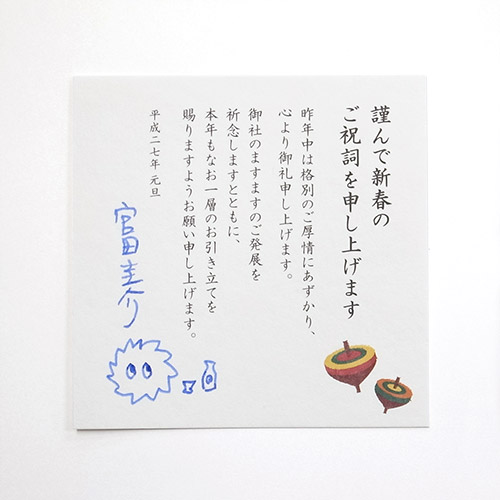 謹んで新春の
ご祝詞を申し上げます
昨年中は格別のご厚情にあずかり、
心より御礼申し上げます。
御社のますますのご発展を
祈念しますとともに、
本年もなお一層のお引き立てを
賜りますようお願い申し上げます。
平成二七年 元旦
富田圭介